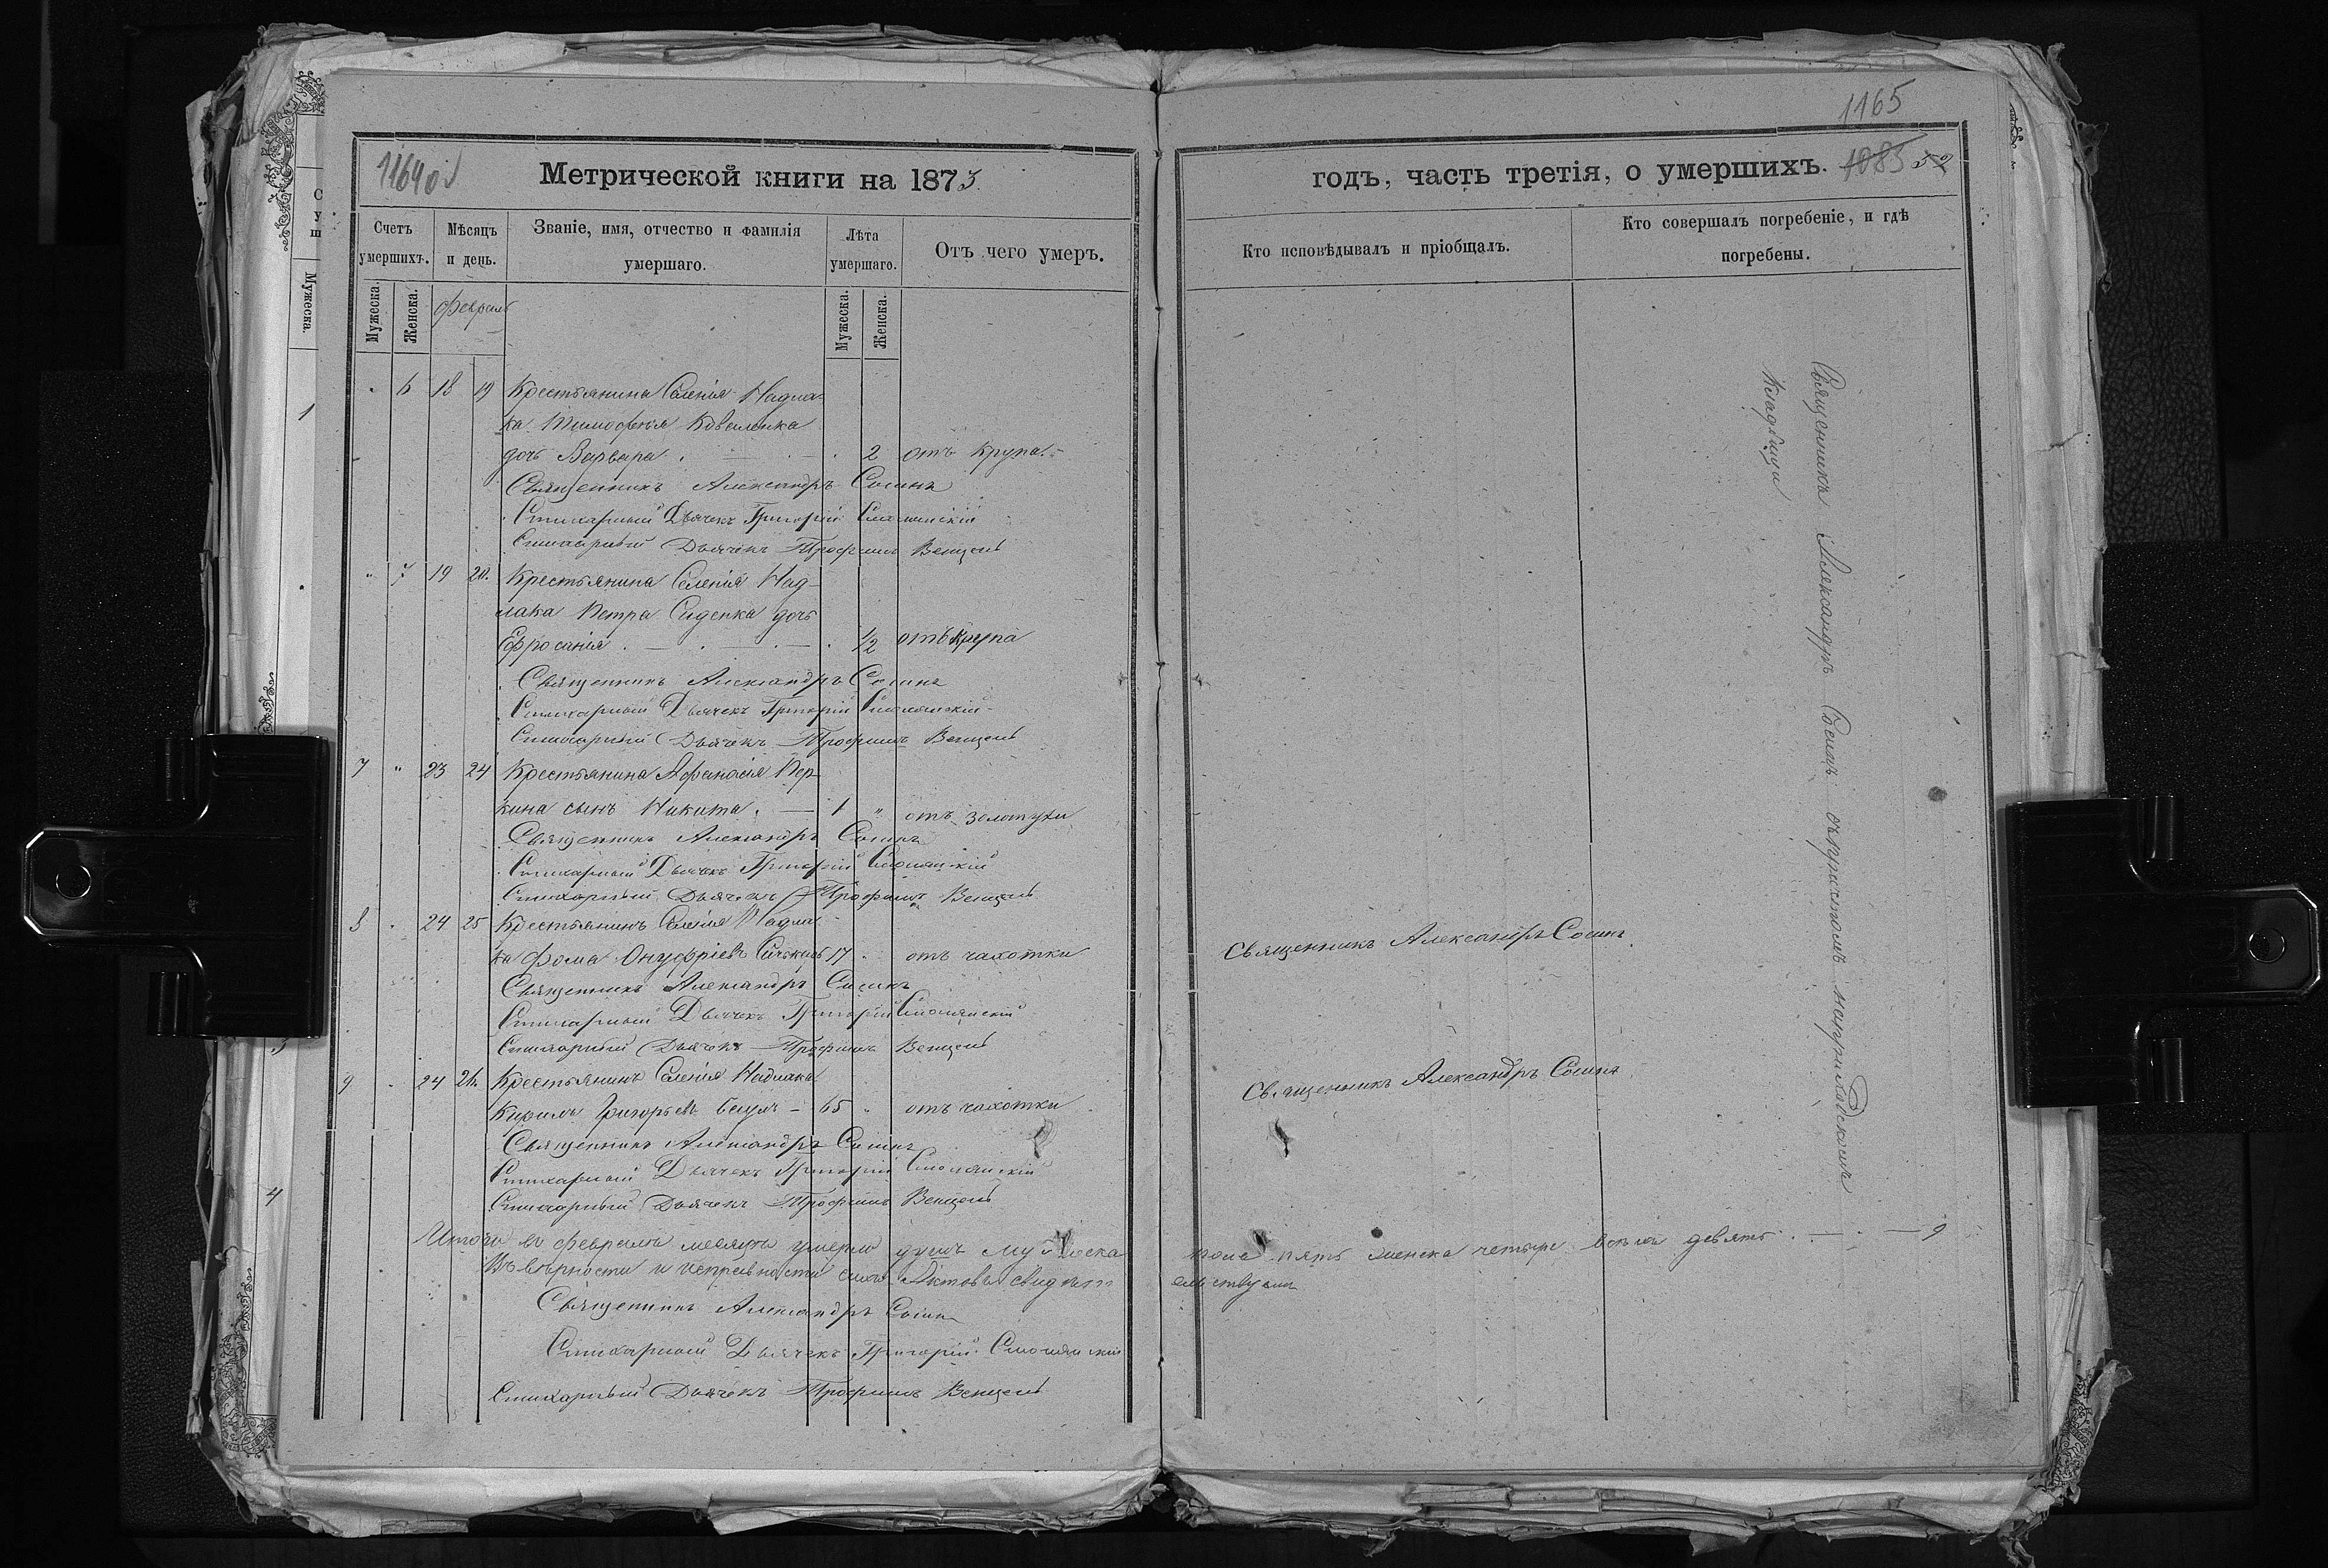 1164 об
Метрической книги на 1873
Счетъ умершихъ.
Мѣсяцъ и день.
Званіе, имя, отчество и фамилія умершаго.
Лѣта умершаго.
Отъ чего умеръ.
Мужеска.
Женска.
Февраль
Мужеска.
Женска.
6 18 19 Крестьянина Селенія Надла-
ка Тимофея Коваленка
дочь Варвара 2 отъ крупа
Священникъ Александръ Сосинъ
Стихарный Дьячекъ Григорій
Стихарный Дьячекъ Трофимъ Венцель
7 19 20 Крестьянина Селенія Над-
лака Петра Сиденка дочь
Ефросинія 1/2 отъ крупа
Священникъ Александръ Сосинъ
Стихарный Дьячекъ Григорій
Стихарный Дьячекъ Трофимъ Венцель
7 " 23 24 Крестьянина Афанасія Пер-
кина сынъ Никита 1 " отъ золотухи
Священникъ Александръ Сосинъ
Стихарный Дьячекъ Григорій
Стихарный Дьячекъ Трофимъ Венцель
8 24 25 Крестьянинъ Селенія Надла-
ка Фома Онуфріевъ 17 отъ чахотки
Священникъ Александръ Сосинъ
Стихарный Дьячекъ Григорій
Стихарный Дьячекъ Трофимъ Венцель
9 24 26 Крестьянинъ Селенія Надлака
Кирилъ Григорьевъ 65 " отъ чахотки
Священникъ Александръ Сосинъ
Стихарный Дьячекъ Григорій
Стихарный Дьячекъ Трофимъ Венцель
Итого въ февралѣ месяцѣ умерло душъ мужеска
Въ вѣрности и исправности сихъ Актовъ свидѣт
Священникъ Александръ Сосинъ
Стихарный Дьячекъ Григорій
Стихарный Дьячекъ Трофимъ Венцель
1165
годъ, часть третія, о умершихъ. 1085 52
Кто исповѣдывалъ и пріобщалъ.
Кто совершалъ погребеніе, и гдѣ погребены.
Священникъ Александръ Сосинъ съ причтомъ на приходскомъ
кладбищи
Священникъ Александръ Сосинъ
Священникъ Александръ Сосинъ
пола пять женска четыре всѣхъ девять 9
ельствуемъ
Мужеска.
1
3
4